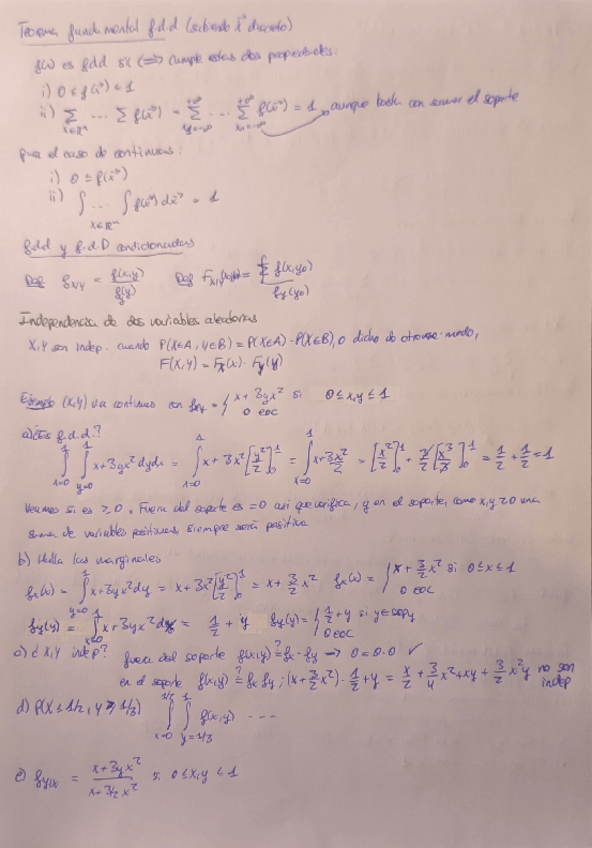 Teorema fundamental f.d.d (sabiendo x⃗ discreto)
f(x) es fdd si (⟺) cumple estas dos propiedades:
i) 0 ≤ f(x⃗) ≤ 1
ii) Σ_{x∈ℝⁿ} ... Σ f(x⃗) = Σ_{x₁=-∞}^{+∞} ... Σ_{xn=-∞}^{+∞} f(x⃗) = 1 aunque basta con sumar el soporte
para el caso de continuas:
i) 0 ≤ f(x⃗)
ii) ∫ ... ∫_{x∈ℝⁿ} f(x⃗) dx⃗ = 1
f.dd y f.d.D condicionadas
Def f_{X/Y} = f(x,y) / f_y(y) Def F = f(x,y₀) / f_y(y₀)
Independencia de dos variables aleatorias
X,Y son indep. cuando P(X∈A, Y∈B) = P(X∈A)·P(X∈B), o dicho de otro modo,
F(X,Y) = F_X(x)·F_Y(y)
Ejemplo (X,Y) va continuas con f_{XY} = { x + 3yx² si 0 ≤ x,y ≤ 1
0 eoc
a) ¿Es f.d.d.?
∫_{x=0}^{1} ∫_{y=0}^{1} x+3yx² dydx = ∫_{x=0}^{1} x+3x² [y²/2]₀¹ = ∫_{x=0}^{1} x+3x²/2 = [x²/2]₀¹ + 3/2 [x³/3]₀¹ = 1/2 + 1/2 = 1
Veamos si es ≥ 0. Fuera del soporte es =0 asi que verifica, y en el soporte, como x,y ≥ 0 una
suma de variables positivas, siempre será positiva
b) Halla las marginales
f_x(x) = ∫_{y=0}^{1} x+3yx² dy = x+3x² [y²/2]₀¹ = x + 3/2 x² f_x(x) = { x + 3/2 x² si 0≤x≤1
0 eoc
f_y(y) = ∫_{x=0}^{1} x+3yx² dx = 1/2 + y f_y(y) = { 1/2 + y si y∈sopy
0 eoc
c) ¿X,Y indep? fuera del soporte f(x,y) ≟ f_x·f_y → 0 = 0·0 ✓
en el soporte f(x,y) ≟ f_x f_y ; (x+3/2 x²)·1/2+y = x/2 + 3/4 x²+xy+ 3/2 x²y no son
indep
d) P(X≤1/2, Y≥1/3) ∫_{x=0}^{1/2} ∫_{y=1/3}^{1} f(x,y) ...
e) f_{Y|X} = x+3yx² / x+3/2x² si 0≤x,y≤1